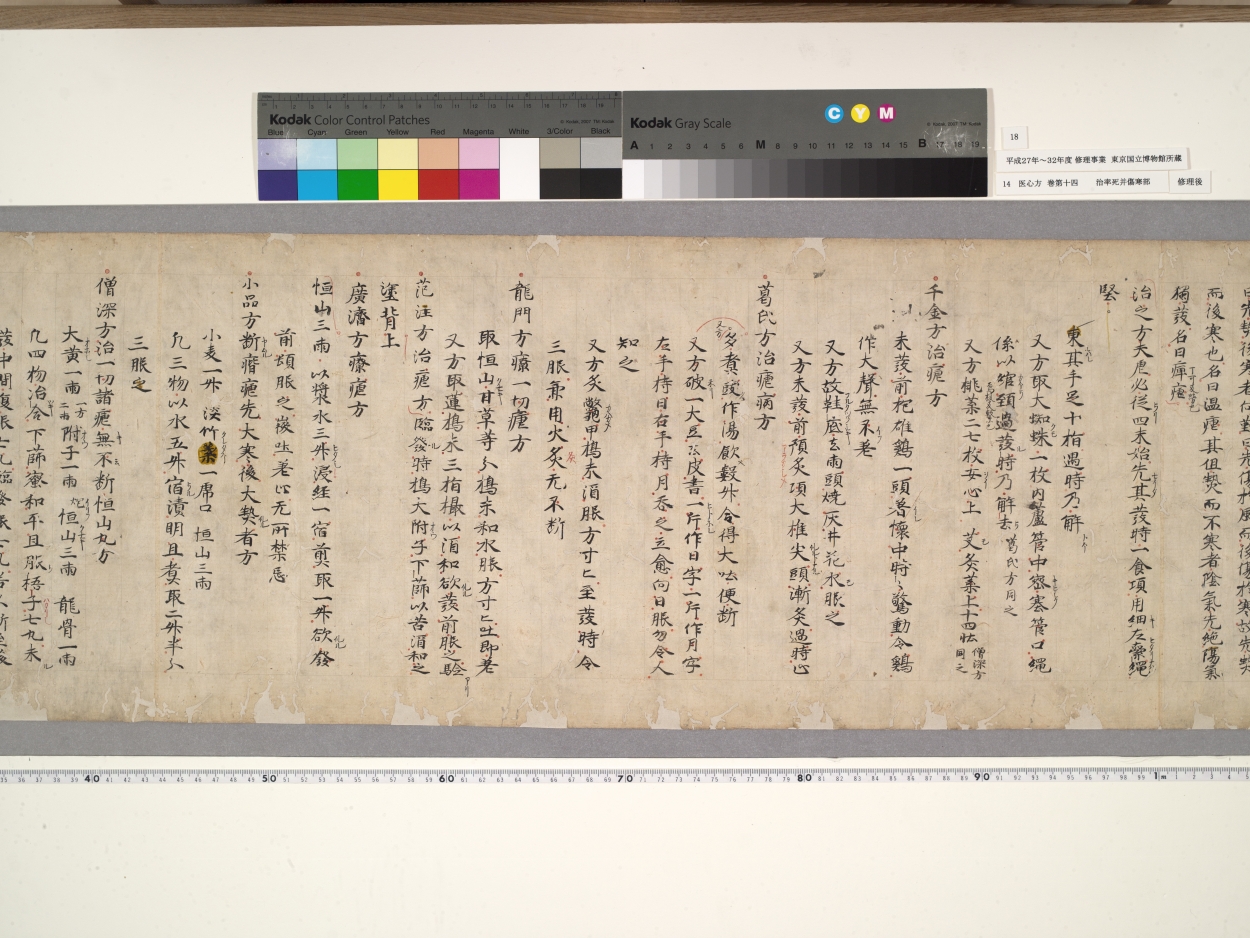 Kodak Color Control Patches
Blue Cyan Green Yellow Red Magenta White 3/Color Black
Kodak Gray Scale
C Y M
A 1 2 3 4 5 6 M 8 9 10 11 12 13 14 15 B 17 18 19
18
平成27年～32年度 修理事業 東京国立博物館所蔵
14 医心方 巻第十四 治卒死并傷寒部 修理後
而後寒也名曰温瘧其但熱而不寒者陰氣先絶陽氣
獨發名曰癉瘧
治之方夫瘧必從四末始先其發時一食項用細左索繩
堅
束其手足十指過時乃解
又方取大蜘蛛一枚内蘆管中密塞管口繩
係以綰頸過發時乃解去 葛氏方同之
又方桃葉二七枚安心上 艾灸葉上十四壮 僧深方同之
千金方治瘧方
未發前抱雄鷄一頭著懷中時々驚動令鷄
作大聲無不差
又方故鞋底去兩頭燒灰井花水服之
又方未發前預灸項大椎尖頭漸灸過時止
葛氏方治瘧病方
多煮豉作湯飲數升令得大吐便斷
又方破一大豆去皮書一片作日字一片作月字
左手持日右手持月吞之立愈向日服勿令人
知之
又方炙鱉甲搗末酒服方寸匕至發時令
三服兼用火灸无不斷
龍門方療一切瘧方
取恒山甘草等分搗末和水服方寸匕吐即差
又方取蓮搗末三指撮以酒和欲發前服之驗
范汪方治瘧方臨發時搗大附子下篩以苦酒和之
塗背上
廣濟方療瘧方
恒山三兩以漿水三升浸經一宿煎取一升欲發
前頓服之後吐差止无所禁忌
小品方斷瘧先大寒後大熱者方
小麦一升 淡竹葉一席口 恒山三兩
凡三物以水五升宿漬明旦煮取二升半分
三服之
僧深方治一切諸瘧無不断恒山丸方
大黄一兩 附子一兩 恒山三兩 龍骨一兩
凡四物冶合下篩蜜和平旦服梧子七丸未
40 50 60 70 80 90 1m